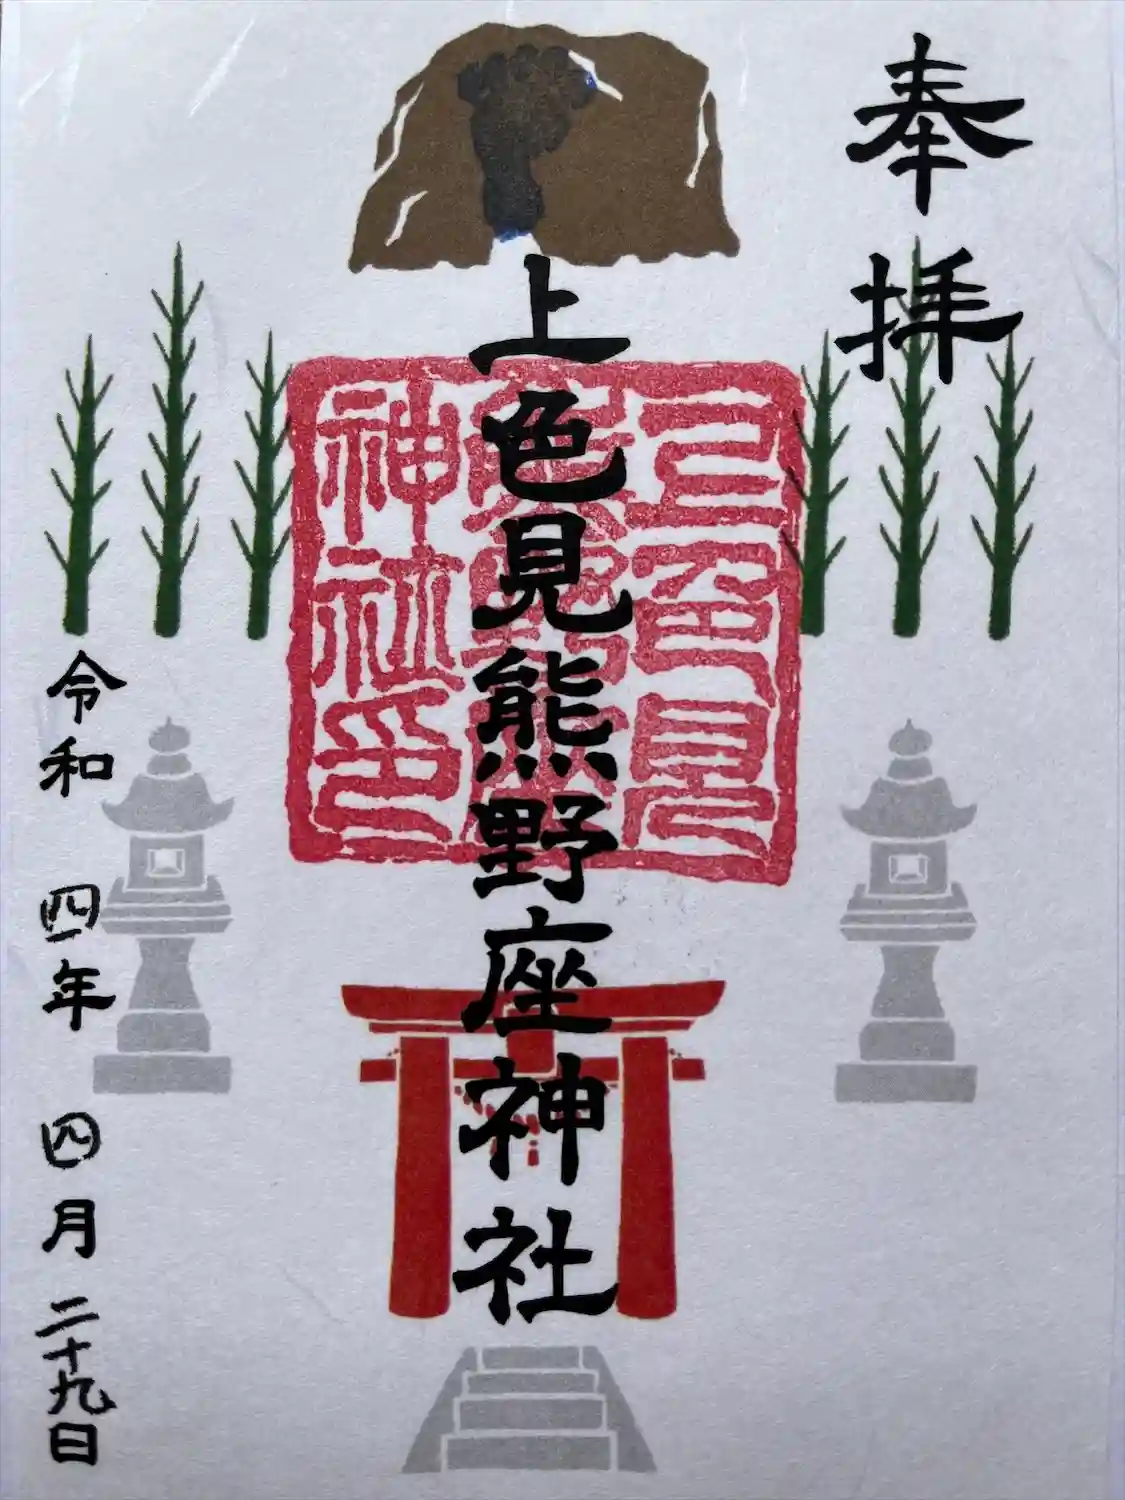 奉拝
上色見熊野座神社
上色見
熊野座
神社印
令和四年四月二十九日